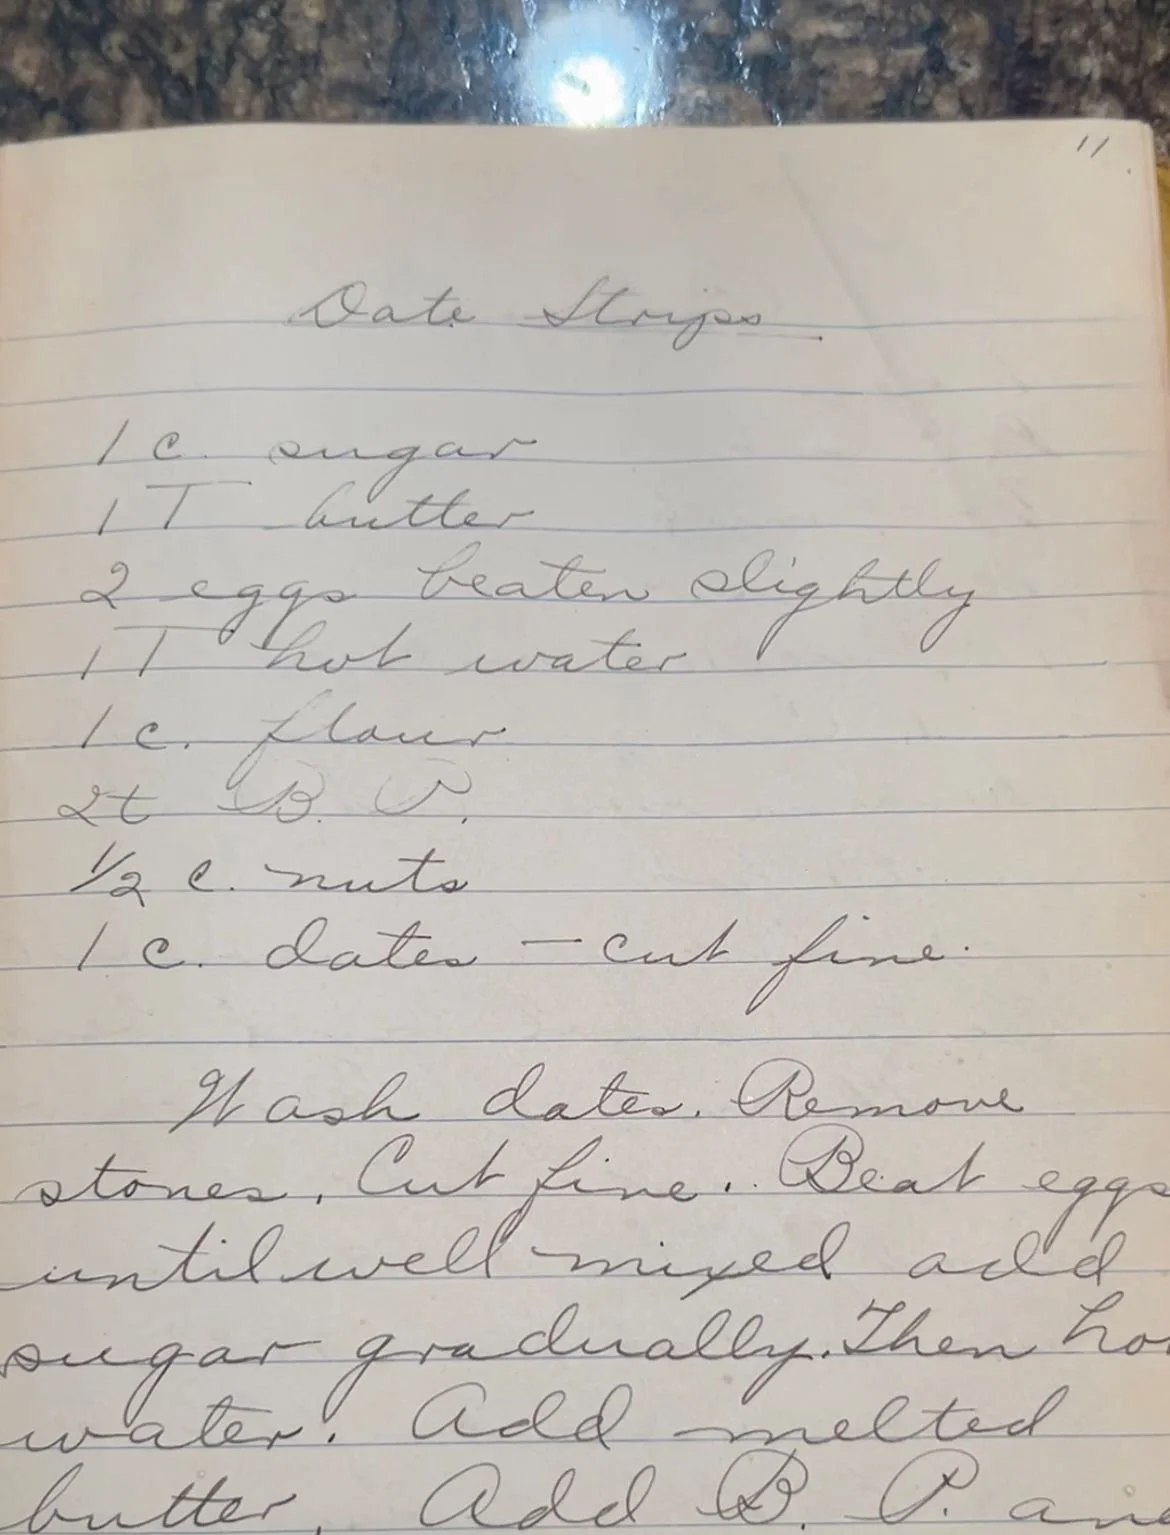 11
Date Strips
1 c. sugar
1 T butter
2 eggs beaten slightly
1 T hot water
1 c. flour
2t B. P.
1/2 c. nuts
1 c. dates - cut fine.
Wash dates. Remove
stones. Cut fine. Beat eggs
until well mixed add
sugar gradually. Then ho
water. Add melted
butter. Add B. P. an